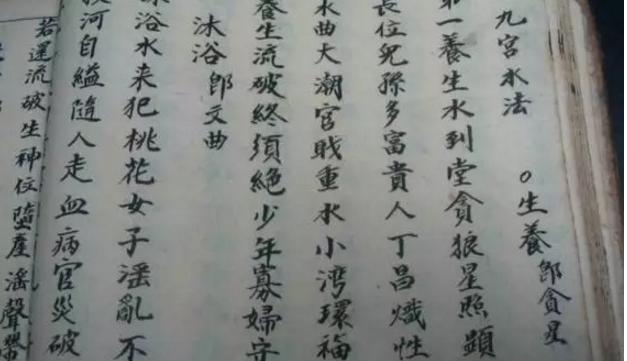 九宮水法 ○生養郎貪星
第一養生水到堂貪狼星照顯
長位兒孫多富貴人丁昌熾性
水曲大潮官戝重水小灣環福
養生流破終須絶少年寡婦守
沐浴郎文曲
沐浴水来犯桃花女子滛亂不
投河自縊隨人走血病官災破
若還流破生神位墮産滛聲